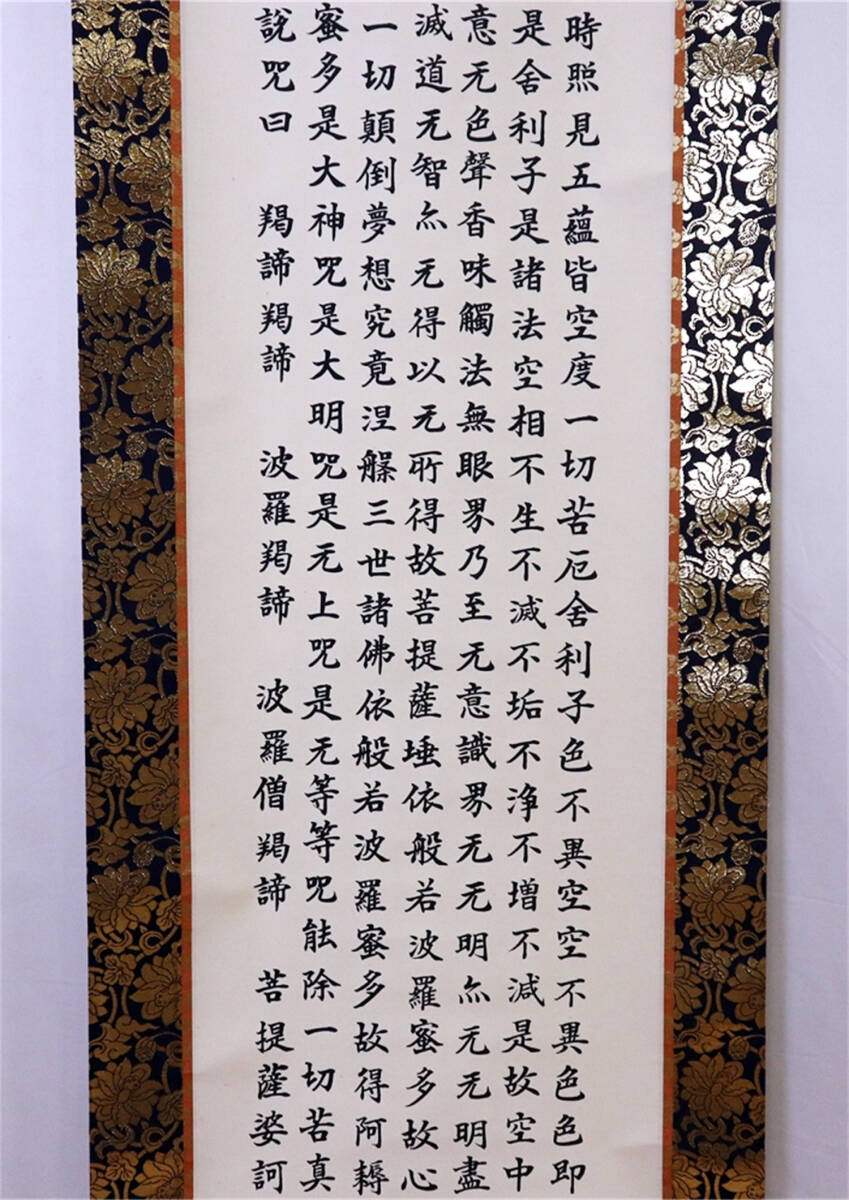 時照見五蘊皆空度一切苦厄舍利子色不異空空不異色色即
是舍利子是諸法空相不生不滅不垢不浄不增不減是故空中
意无色聲香味觸法無眼界乃至无意識界无无明亦无无明盡
滅道无智亦无得以无所得故菩提薩埵依般若波羅蜜多故心
一切顛倒夢想究竟涅槃三世諸佛依般若波羅蜜多故得阿耨
蜜多是大神咒是大明咒是无上咒是无等等咒能除一切苦真
說咒曰 羯諦羯諦 波羅羯諦 波羅僧羯諦 菩提薩婆訶